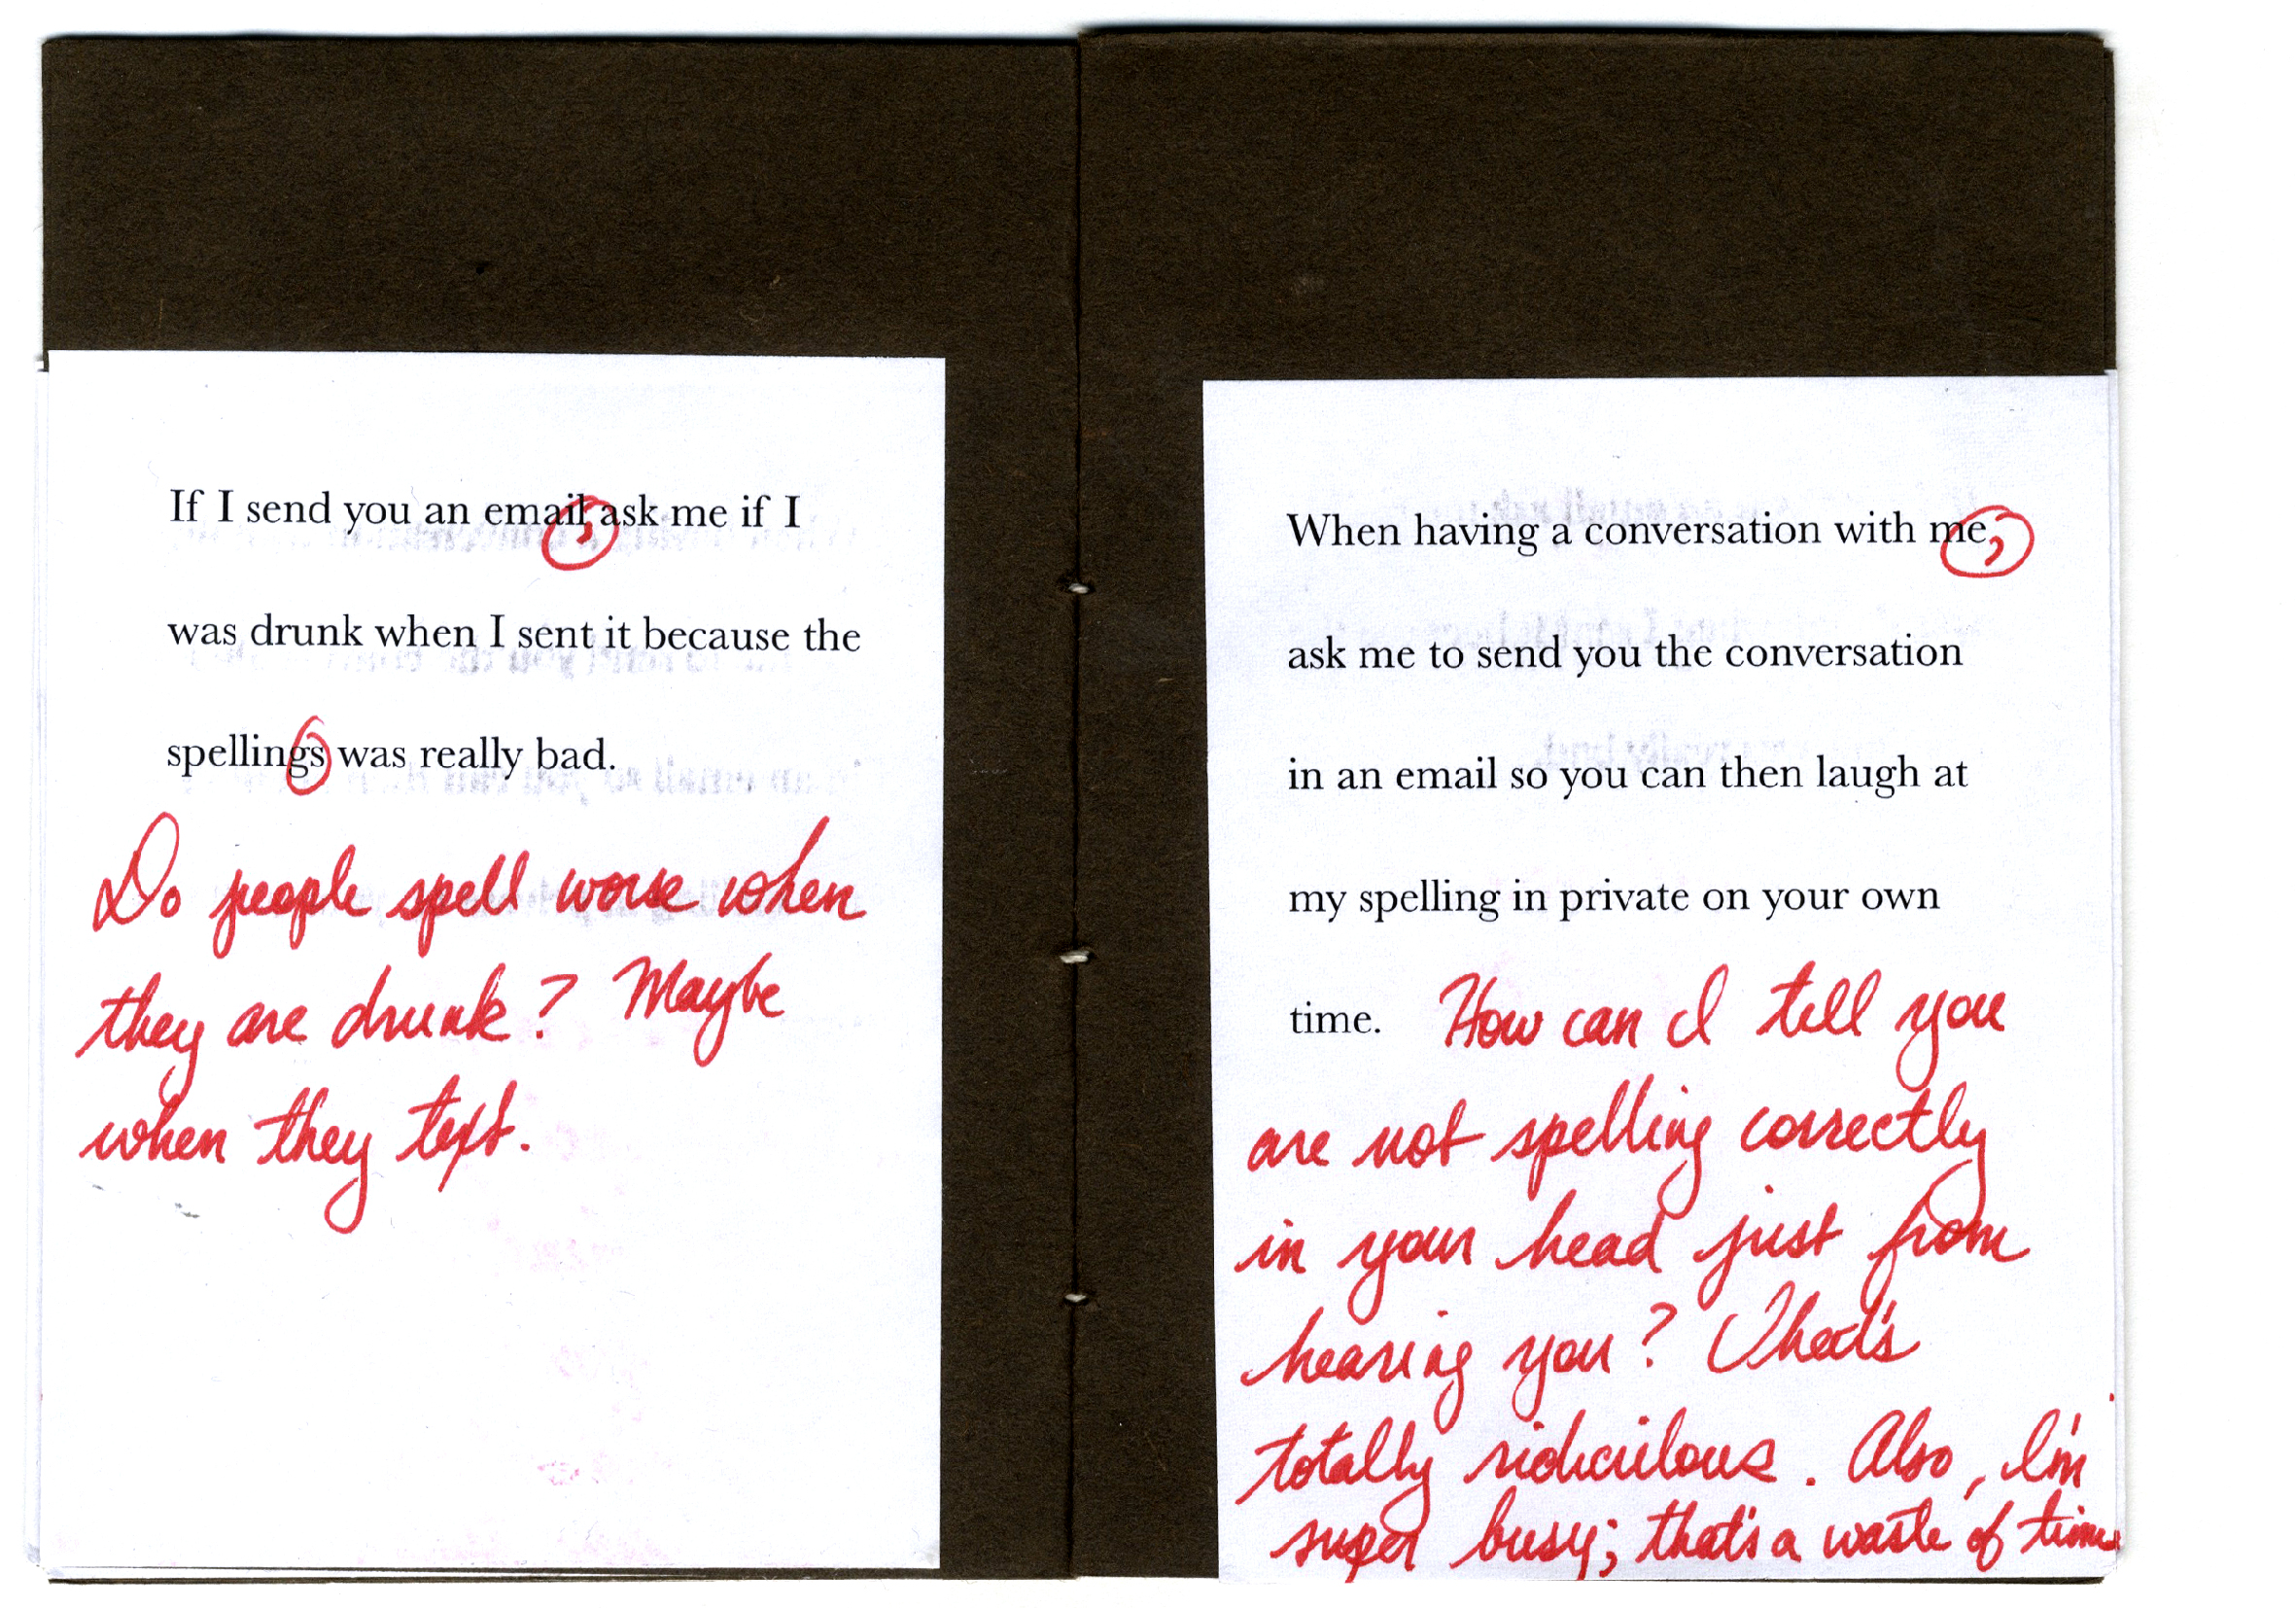 If I send you an email, ask me if I
was drunk when I sent it because the
spellings was really bad.
Do people spell worse when
they are drunk? Maybe
when they text.
When having a conversation with me,
ask me to send you the conversation
in an email so you can then laugh at
my spelling in private on your own
time. How can I tell you
are not spelling correctly
in your head just from
hearing you? That's
totally ridiculous. Also, I'm
super busy; that's a waste of time